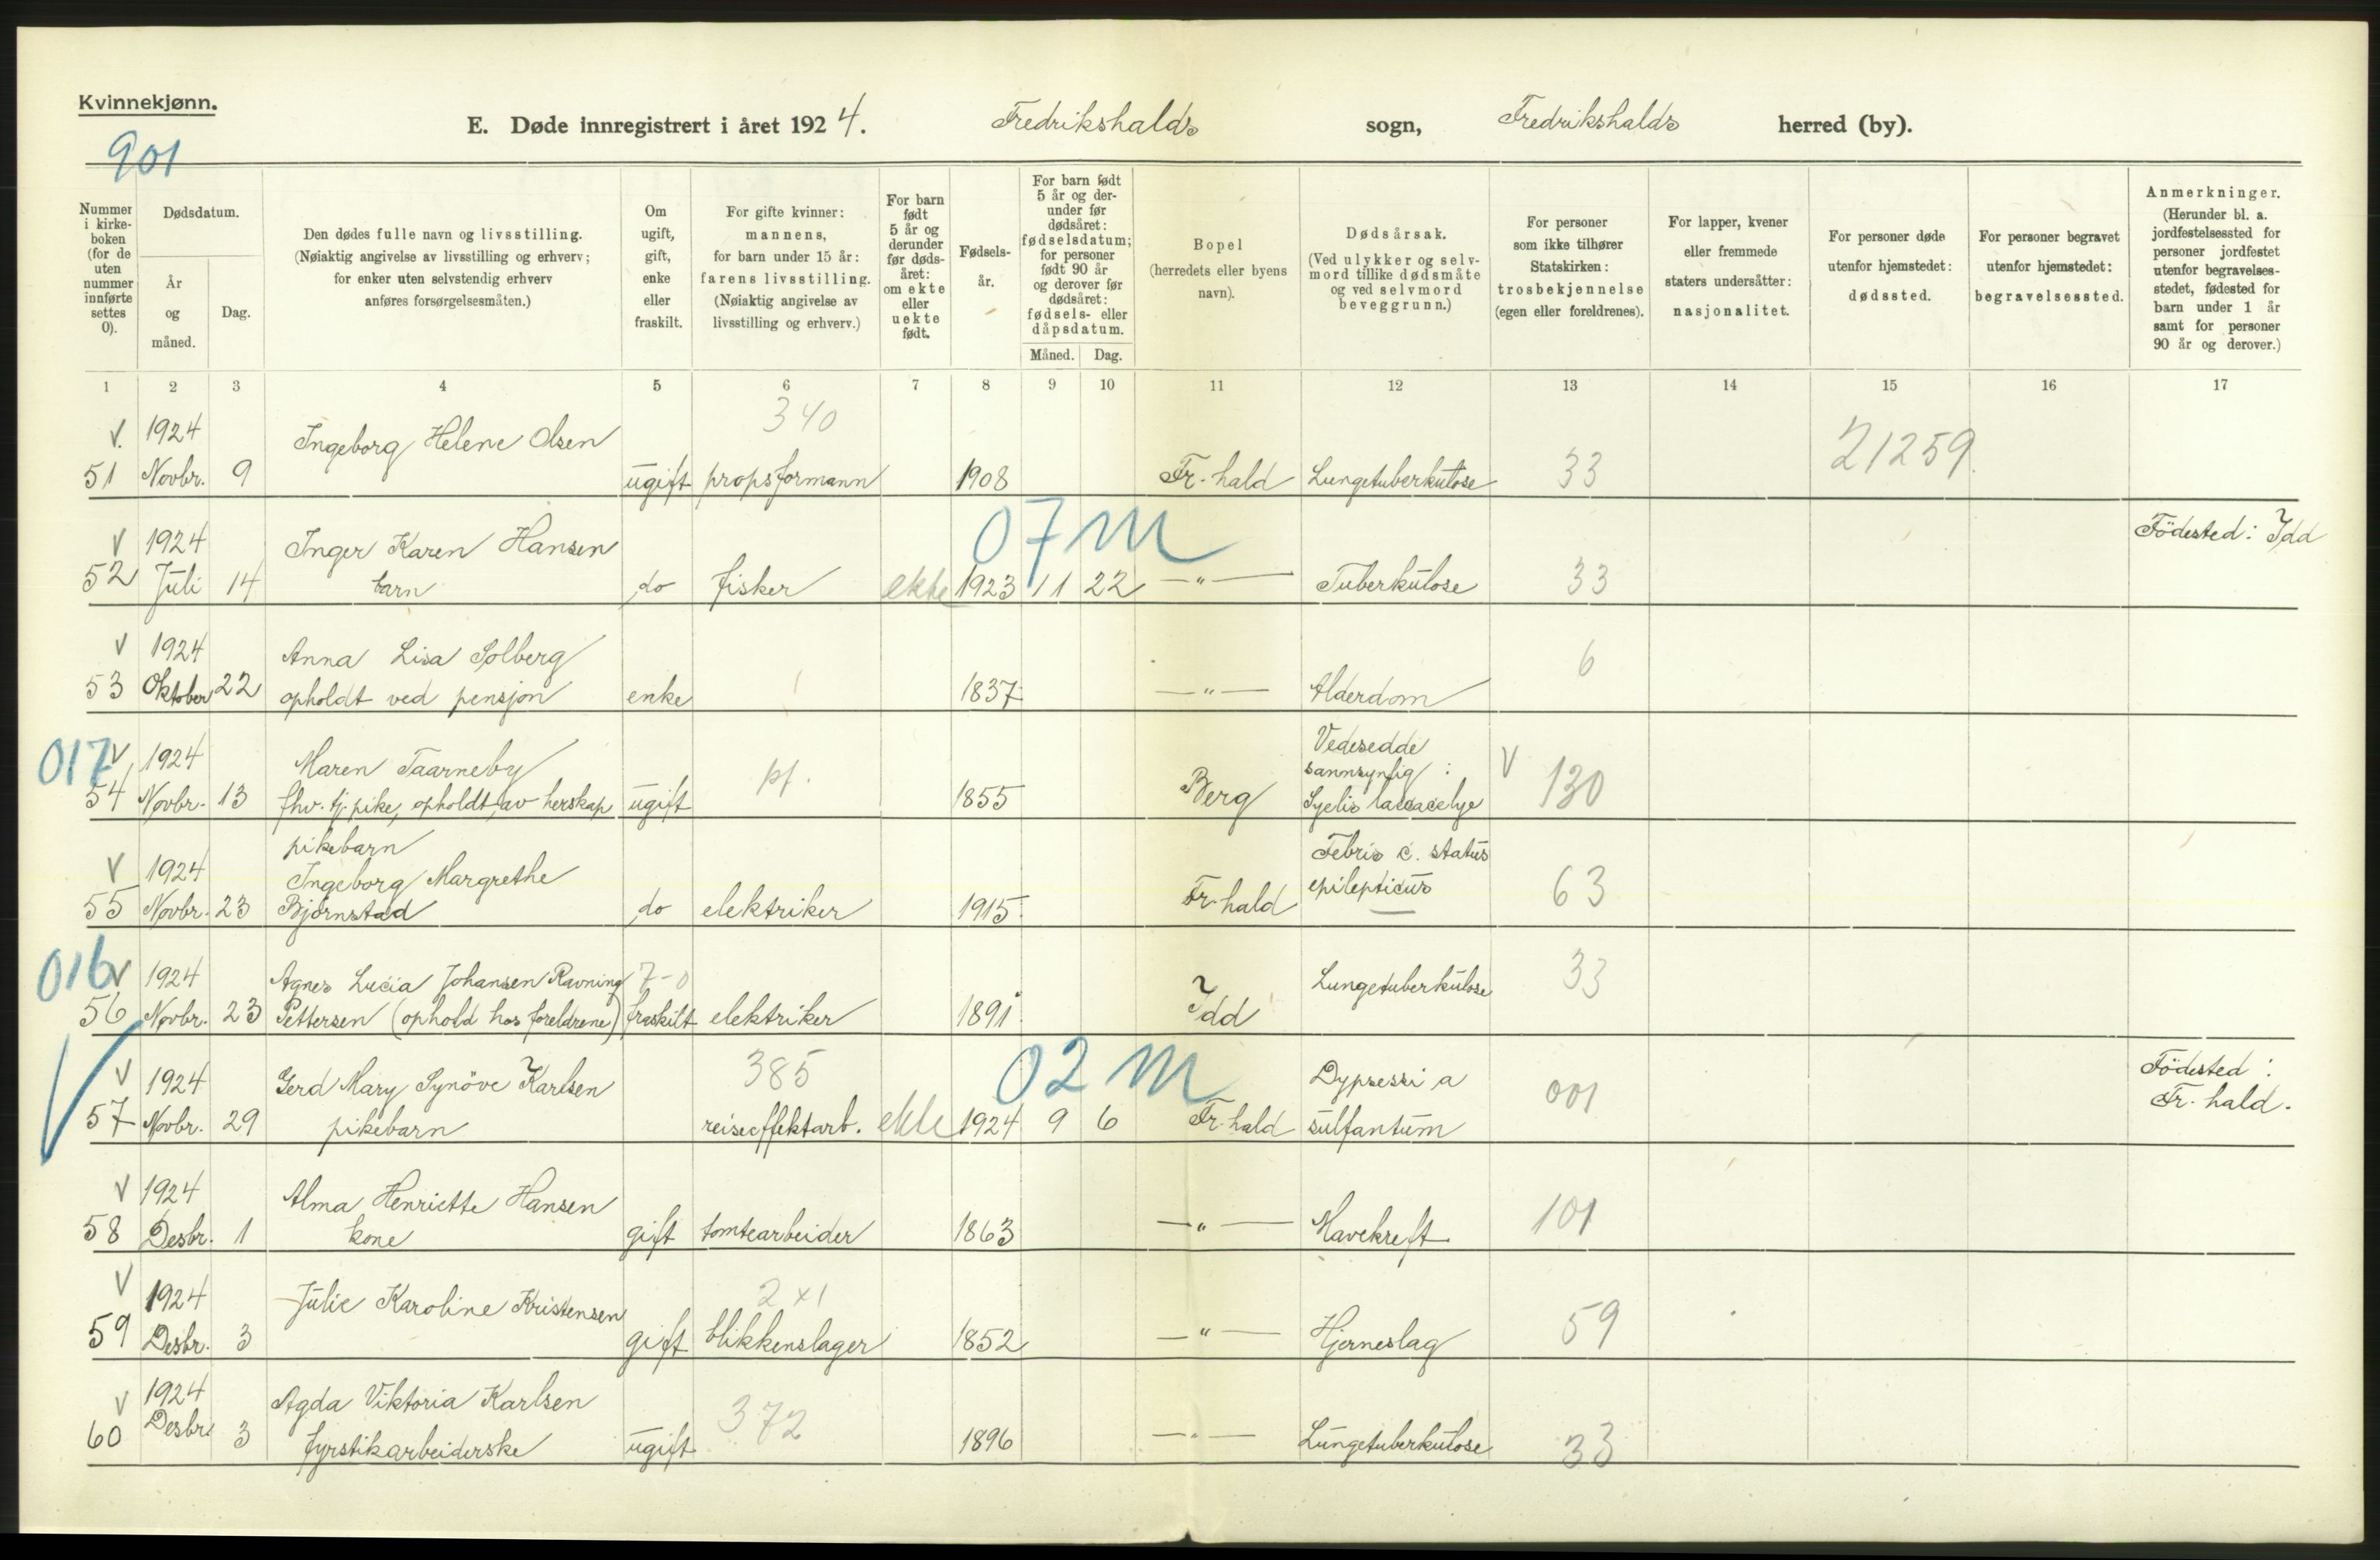 Kvinnekjønn.
E. Døde innregistrert i året 1924. Fredrikshalds sogn, Fredrikshalds herred (by).
901
Nummer i kirke-boken (for de uten nummer innførte settes 0).
Dødsdatum.
År og måned.
Dag.
Den dødes fulle navn og livsstilling.
(Nøiaktig angivelse av livsstilling og erhverv;
for enker uten selvstendig erhverv
anføres forsørgelsesmåten.)
Om ugift, gift, enke eller fraskilt.
For gifte kvinner:
mannens,
for barn under 15 år:
farens livsstilling.
(Nøiaktig angivelse av
livsstilling og erhverv.)
For barn født 5 år og derunder før døds-året: om ekte eller uekte født.
Fødsels-år.
For barn født 5 år og der-under før dødsåret: fødselsdatum; for personer født 90 år og derover før dødsåret: fødsels- eller dåpsdatum.
Måned. Dag.
Bopel
(herredets eller byens
navn).
Dødsårsak.
(Ved ulykker og selv-
mord tillike dødsmåte
og ved selvmord
beveggrunn.)
For personer
som ikke tilhører
Statskirken:
trosbekjennelse
(egen eller foreldrenes).
For lapper, kvener
eller fremmede
staters undersåtter:
nasjonalitet.
For personer døde
utenfor hjemstedet:
dødssted.
For personer begravet
utenfor hjemstedet:
begravelsessted.
Anmerkninger.
(Herunder bl. a.
jordfestelsessted for
personer jordfestet
utenfor begravelses-
stedet, fødested for
barn under 1 år
samt for personer
90 år og derover.)
1 2 3 4 5 6 7 8 9 10 11 12 13 14 15 16 17
V. 1924 Ingeborg Helene Olsen 340 21259
51 Novbr. 9 ugift propsformann 1908 Fr. hald Lungetuberkulose 33
V 1924 Inger Karen Hansen 07 M Födested: Idd
52 Juli 14 barn do fisker ekte 1923 11 22 —„— Tuberkulose 33
V 1924 Anna Lisa Solberg 6
53 Oktober 22 opholdt ved pensjon enke 1837 —„— Alderdom
017 V 1924 Maren Taarneby pf. Vedesedde
sannsynlig: V 130
54 Novbr. 13 fhv. tj. pike, opholdt av herskap ugift 1855 Berg
pikebarn Febris c. status
V 1924 Ingeborg Margrethe epilepticus 63
55 Novbr. 23 Bjørnstad do elektriker 1915 Fr. hald
016 V 1924 Agnes Lucia Johansen Ravning 7-0 Lungetuberkulose 33
56 Novbr. 23 Pettersen (ophold hos foreldrene) fraskilt elektriker 1891 Idd
V 1924 Gerd Mary Synöve Karlsen 385 02 M Dypsessia 001 Födested:
57 Novbr. 29 pikebarn reiseeffektarb. ekte 1924 9 6 Fr. hald sulfantum Fr. hald.
V 1924 Alma Henriette Hansen 101
58 Desbr. 1 kone gift tomtearbeider 1863 —„— Mavekreft
V 1924 Julie Karoline Kristensen 2x1 59
59 Desbr. 3 gift blikkenslager 1852 —„— Hjerneslag
V 1924 Agda Viktoria Karlsen 372
60 Desbr. 3 fyrstikarbeiderske ugift 1896 —„— Lungetuberkulose 33